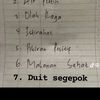 2. Air Putih
4. Olah Raga
4. Istirahat
5. Pikiran Positif
6. Makanan Sehat
7. Duit segepok